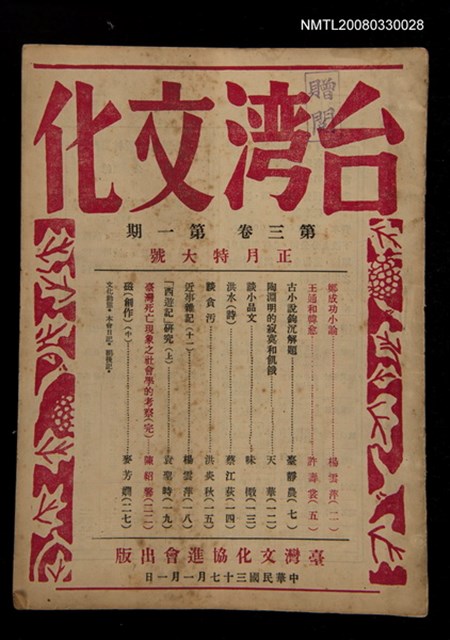 NMTL20080330028
贈閱
台湾文化
第三卷 第一期
正月特大號
鄭成功小論 楊雲萍(二)
王通和韓愈 許壽裳(五)
古小說鉤沉解題 臺靜農(七)
陶淵明的寂寞和飢餓 天華(一二)
談小品文 味橄(一三)
洪水(詩) 蔡江荻(一四)
談貪汚 洪炎秋(一五)
近事雜記(十一) 楊雲萍(一八)
「西遊記」研究(上) 袁聖時(一九)
臺灣死亡現象之社會學的考察(完) 陳紹馨(二二)
磁(創作)(中) 麥芳嫻(二七)
文化動態・本會日記・編後記・
臺灣文化協進會出版
中華民國三十七年一月一日